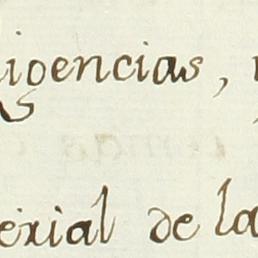 igencias,
erial de la